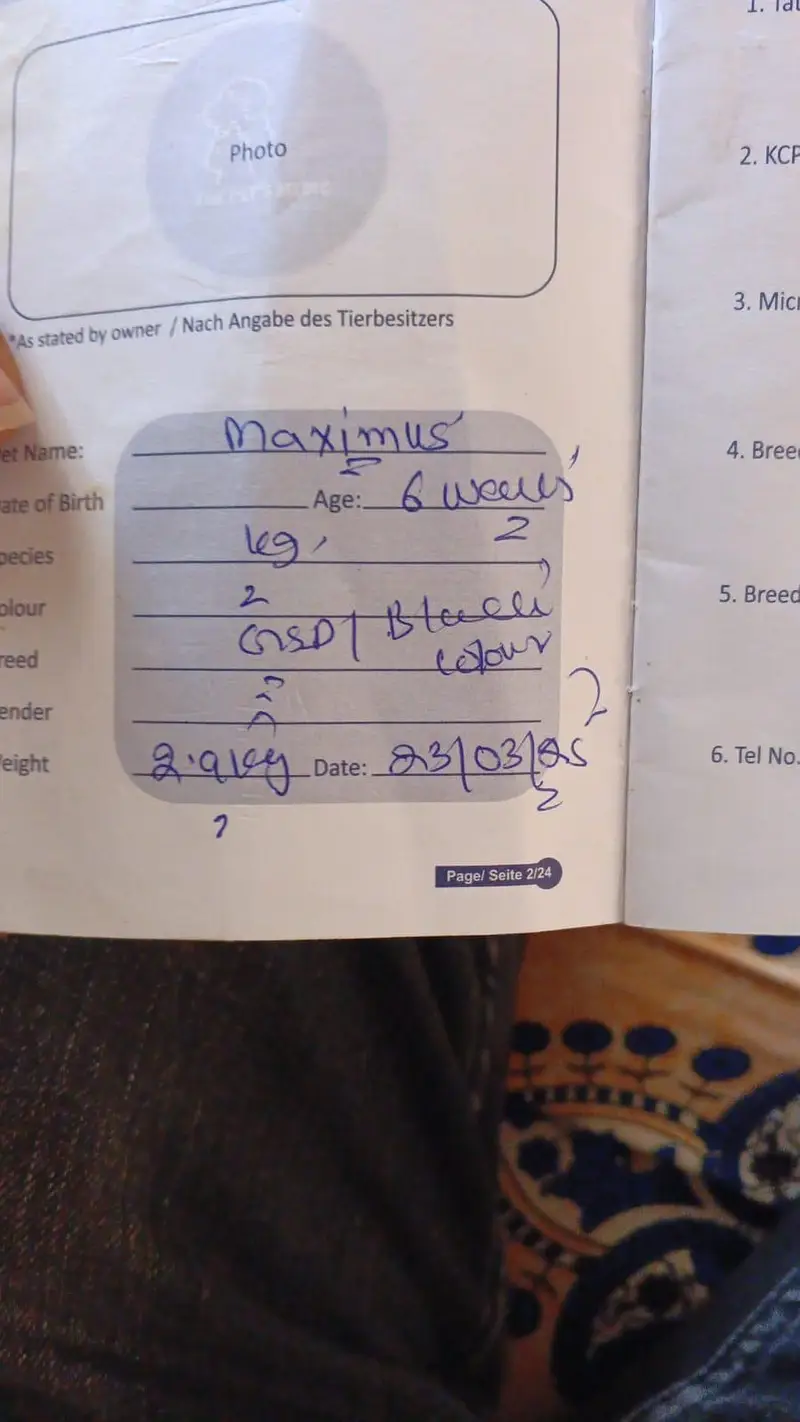 Photo
*As stated by owner / Nach Angabe des Tierbesitzers
et Name: Maximus
ate of Birth Age: 6 weeks
pecies
olour
reed GSD / Black colour
ender
eight 2.9 kg Date: 23/03/25
Page/ Seite 2/24
2. KCP
3. Micr
4. Bree
5. Breed
6. Tel No.